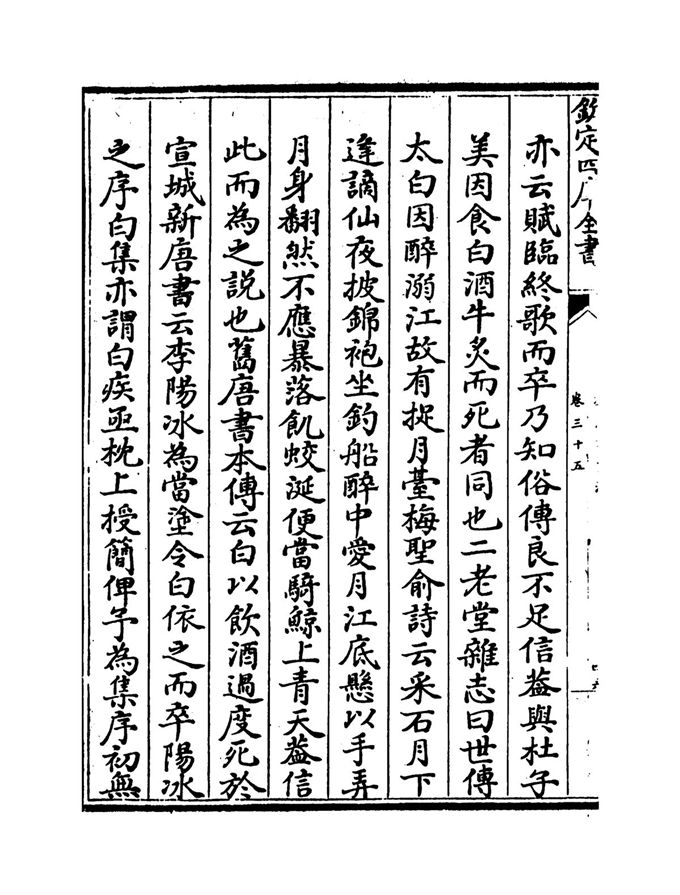 欽定四庫全書
卷三十五
亦云賦臨終歌而卒乃知俗傳良不足信葢與杜子
美因食白酒牛炙而死者同也二老堂雜志曰世傳
太白因醉溺江故有捉月臺梅聖俞詩云采石月下
逢謫仙夜披錦袍坐釣船醉中愛月江底懸以手弄
月身翻然不應暴落飢蛟涎便當騎鯨上青天葢信
此而為之説也舊唐書本傳云白以飲酒過度死於
宣城新唐書云李陽冰為當塗令白依之而卒陽冰
之序白集亦謂白疾亟枕上授簡俾予為集序初無